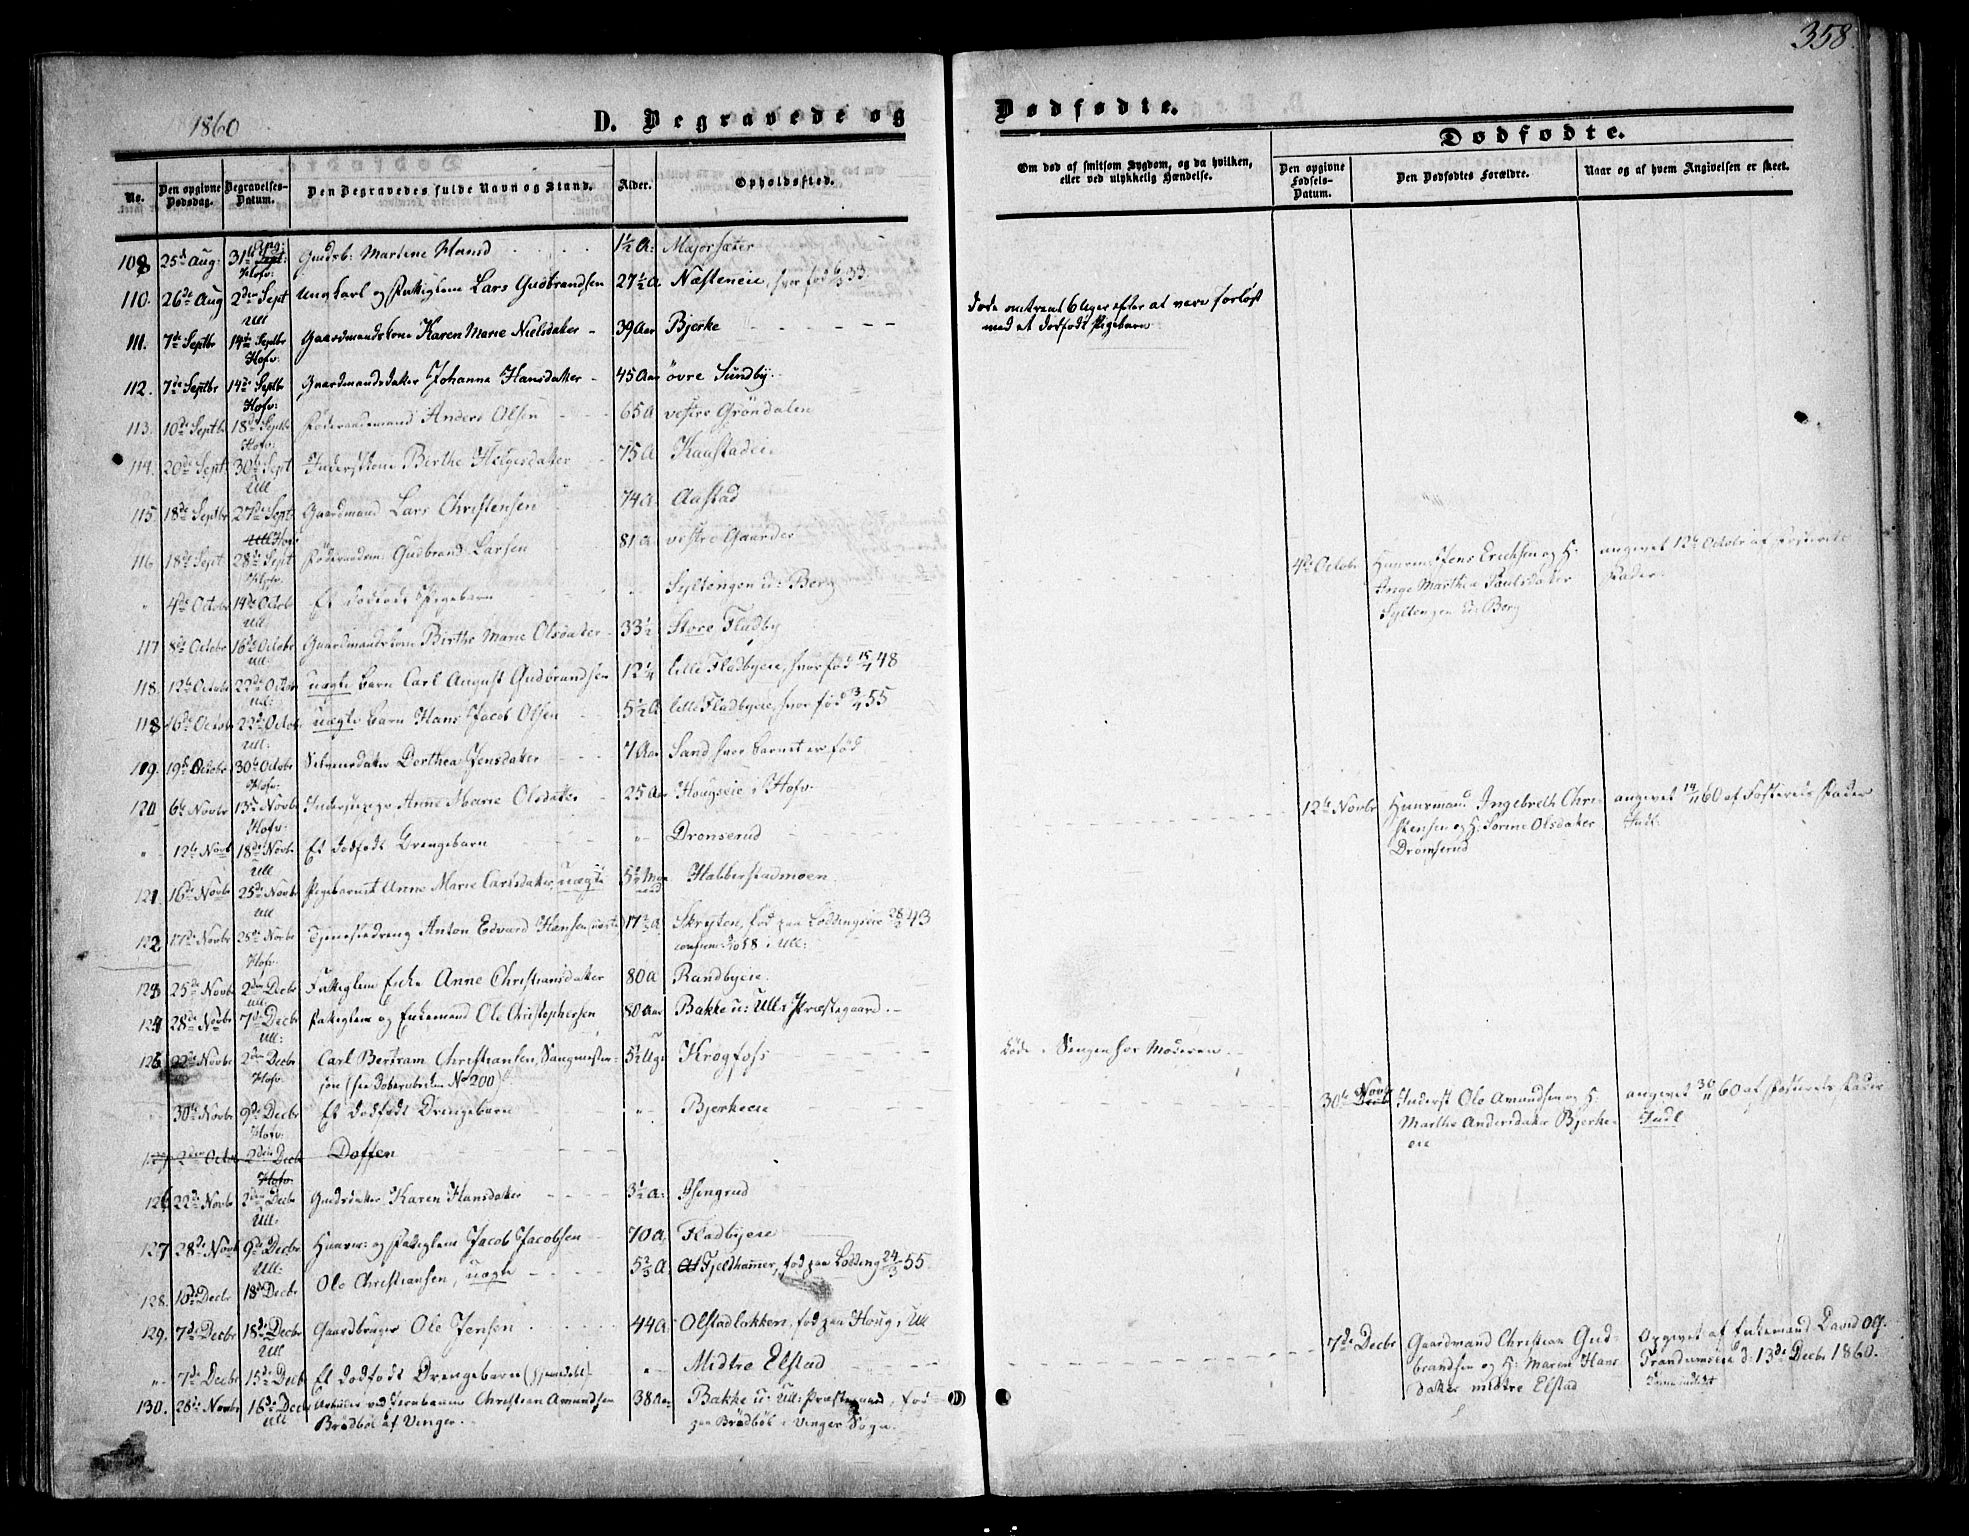 358.
1860
D. Begravede og
Dødfødte.
No.
Den opgivne Dødsdag.
Begravelses-Datum.
Den Begravedes fulde Navn og Stand.
Alder.
Opholdssted.
Om død af smitsom Sygdom, og da hvilken, eller ved ulykkelig Hændelse.
Dødfødte.
Den opgivne Fødsels-Datum.
Den Dødfødtes Forældre.
Naar og af hvem Angivelsen er skeet.
108 25de Aug: 31te Aug: Hofv: Gudsb: Martine Hansd 1½ A: Majorsæter
110. 26de Aug 2den Sept Ull Ungkarl og Fattiglem Lars Gudbrandsen 27½ A Næsteneie, hvor fød 33.
111. 7de Septbr 14de Septbr Hofv: Gaardmandskone Karen Marie Nielsdatter 39 Aar Bjerke
Døde omtrent 6 Uger efter at være forløst
med et dødfødt Pigebarn
112. 7de Septbr 14de Septbr Hofv: Gaardmandsdatter Johanna Hansdatter 45 Aar øvre Sundby
113. 10de Septbr 18de Septbr Hofv: Føderaadsmand Anders Olsen 65 A vestre Gröndalen
114. 20de Sept 30te Sept Ull Inderstkone Berthe Helgesdatter 75 A Kaustadeie
115 18de Septbr 27de Sept Hov: Gaardmand Lars Christensen 74 A. Aastad
116 18de Sept 28de Sept Hofv. Føderaadsm Gudbrand Larsen 81 A. vestre Gaarder
" 4de Octobr 14de Octobr Ull Et dødfødt Pigebarn " Syltengen u: Berg
4de Octobr Huusm: Jens Erichsen og H:
Inge Marthea Paulsdatter
Syltengen u: Berg
angivet 12te Octobr af Fosterets
Fader.
117 8de Octobr 16de Octobr Ull: Gaardmandskone Birthe Marie Olsdatter 33½ Store Fladby
118. 12te Octobr 22de Octobr Ull: uægte Barn Carl August Gudbrandsen 12¼ lille Fladbyeie, hvor fød 48
118 16de Octobr 22de Octobr Ull: uægte Barn Hans Jacob Olsen 5½ A lille Fladbyeie, hvor fød 55
119. 19de Octobr 30te Octobr Hofv: Dorthea Jensdatter 7 Aar Sand hvor Barnet er fød
120 6te Novbr 13de Novbr Hofv: Inderstpige Anne Marie Olsdatter 25 Aar Hougseie i Hofv.
" 12te Novb 18de Novbr Ull Et dødfødt Drengebarn " Drønserud
12te Novbr Huusmand Ingebreth Chri-
stensen og H: Sorine Olsdatter
Drømserud
angivet 60 af Fosterets Fader
Indt:
121 16de Novbr 25de Novbr Ull Pigebarnet Anne Marie Carlsdatter, uægte Habberstadmoen
122 17de Novbr 28de Novbr Hofv. Tjenestedreng Anton Edvard Hansen 17 A Skryten, fød paa Løddingseie 43
i Ull:
123 25de Novbr 2den Decbr Ull: Fattiglem Enke Anne Christiansdatter 80 A Randbyeie.
124 28de Novbr 7de Decbr Ull: Fattiglem og Enkemand Ole Christophersen 80 Aar Bakke u: Ull: Præstegaard.
125 22de Novbr 2den Decbr Hofv. Carl Bertram Christiansen, Sangmester-
søn (see Døberubriken No 200) 5½ Uge Krogfoss
Døde i Sengen hos Moderen.
30te Novbr 9de Decbr Hofv: Et dødfødt Drengebarn " Bjerkeeie
30te Novbr Inderst Ole Amundsen og H:
Marthe Andersdatter Bjerke-
eie
angivet 60 af Fosterets Fader
Indt
127 Octbr 2den Decbr Hofv. Doffen
126 22de Novbr 2den Decbr Ull: Gudsdatter Karen Hansdatter 3½ A: Asengrud
127 28de Novb 9de Decbr Ull: Huusm: og Fattiglem Jacob Jacobsen 70 A Fladbyeie
128. 10de Decbr 18de Decbr Ole Christiansen, uægte 5 A. Fjeldhamer, fød paa Lødding 55
129. 7de Decbr 18de Decbr Ull Gaardbruger Ole Jensen 44 A: Olstadløkken, fød paa Houg i Ull
" 7de Decbr 15de Decb Et dødfødt Drengebarn (hjemmedøbt) " Midtre Elstad
7de Decbr Gaardmand Christian Gud-
brandsen og H: Maren Hans-
datter midtre Elstad
Opgivet af Enkemand David Ols:
Trandumseie d: 13de Decbr 1860.
130. 28de Novbr 16de Decbr Ull Arbeider ved Jernbanen Christian Amundsen
Brødbøl af Vinger. 38 Aar Bakke u: Ull: Præstegaard, fød
paa Brødbøl i Vinger Sogn.